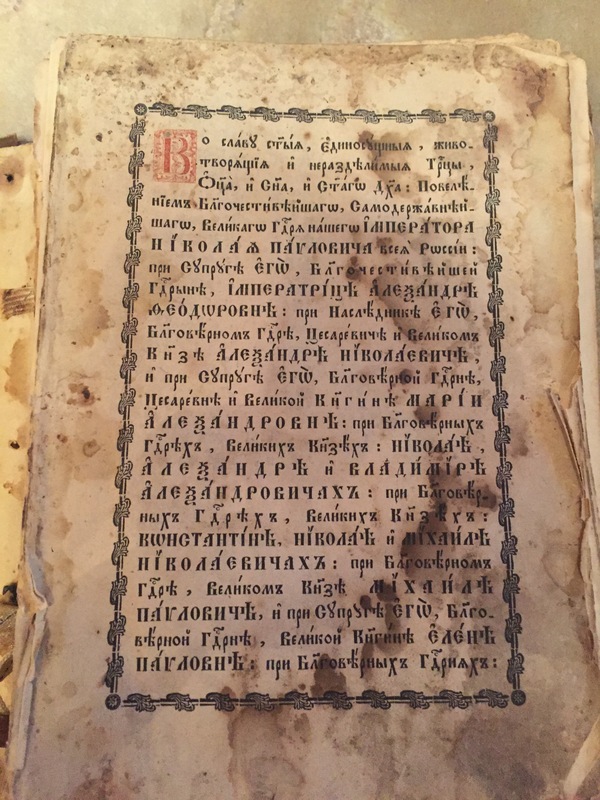 Во сла́вꙋ ст҃ы́ѧ, є҆диносꙋ́щныѧ, живо-
творѧ́щїѧ и҆ нераздѣ́лимыѧ Трⷪ҇цы,
Ѻ҆ц҃а̀, и҆ Сн҃а, и҆ Ст҃а́гѡ Дх҃а: Повелѣ́-
нїемъ Благочести́вѣйшагѡ, Самодержа́внѣй-
шагѡ, Вели́кагѡ Гдⷭ҇рѧ на́шегѡ І҆МПЕРА́ТОРА
НІКОЛА́Ѧ ПА́ѴЛОВИЧА всеѧ̀ Рѡссі́и:
при Сꙋпрꙋ́гѣ Є҆ГѠ̀, Благочести́вѣйшей
Гдⷭ҇рынѣ, І҆МПЕРАТРІ́ЦѢ А҆ЛЕѮА́НДРѢ
Ѳ҆ЕО́ДѠРОВНѢ: при Наслѣ́дникѣ Є҆ГѠ̀,
Благовѣ́рномъ Гдⷭ҇рѣ, Цесаре́вичѣ и҆ Вели́комъ
Кн҃зѣ А҆ЛЕѮА́НДРѢ НІКОЛА́ЕВИЧѢ,
и҆ при Сꙋпрꙋ́гѣ Є҆ГѠ̀, Благовѣ́рной Гдⷭ҇рнѣ,
Цесаре́внѣ и҆ Вели́кой Кнѧги́нѣ МАРІ́И
А҆ЛЕѮА́НДРОВНѢ: при Благовѣ́рныхъ
Гдⷭ҇рѣхъ, Вели́кихъ Кн҃зѣхъ: НІКОЛА́Ѣ,
А҆ЛЕѮА́НДРѢ и҆ ВЛАДИ́МІРѢ
А҆ЛЕѮА́НДРОВИЧАХЪ: при Благовѣ́р-
ныхъ Гдⷭ҇рѣхъ, Вели́кихъ Кн҃зѣхъ:
КѠНСТАНТІ́НѢ, НІКОЛА́Ѣ и҆ МІХАИ́ЛѢ
НІКОЛА́ЕВИЧАХЪ: при Благовѣ́рномъ
Гдⷭ҇рѣ, Вели́комъ Кн҃зѣ МІХАИ́ЛѢ
ПА́ѴЛОВИЧѢ, и҆ при Сꙋпрꙋ́гѣ Є҆ГѠ̀, Благо-
вѣ́рной Гдⷭ҇рнѣ, Вели́кой Кнѧги́нѣ Є҆ЛЕ́НѢ
ПА́ѴЛОВНѢ: при Благовѣ́рныхъ Гдⷭ҇рнѧхъ: